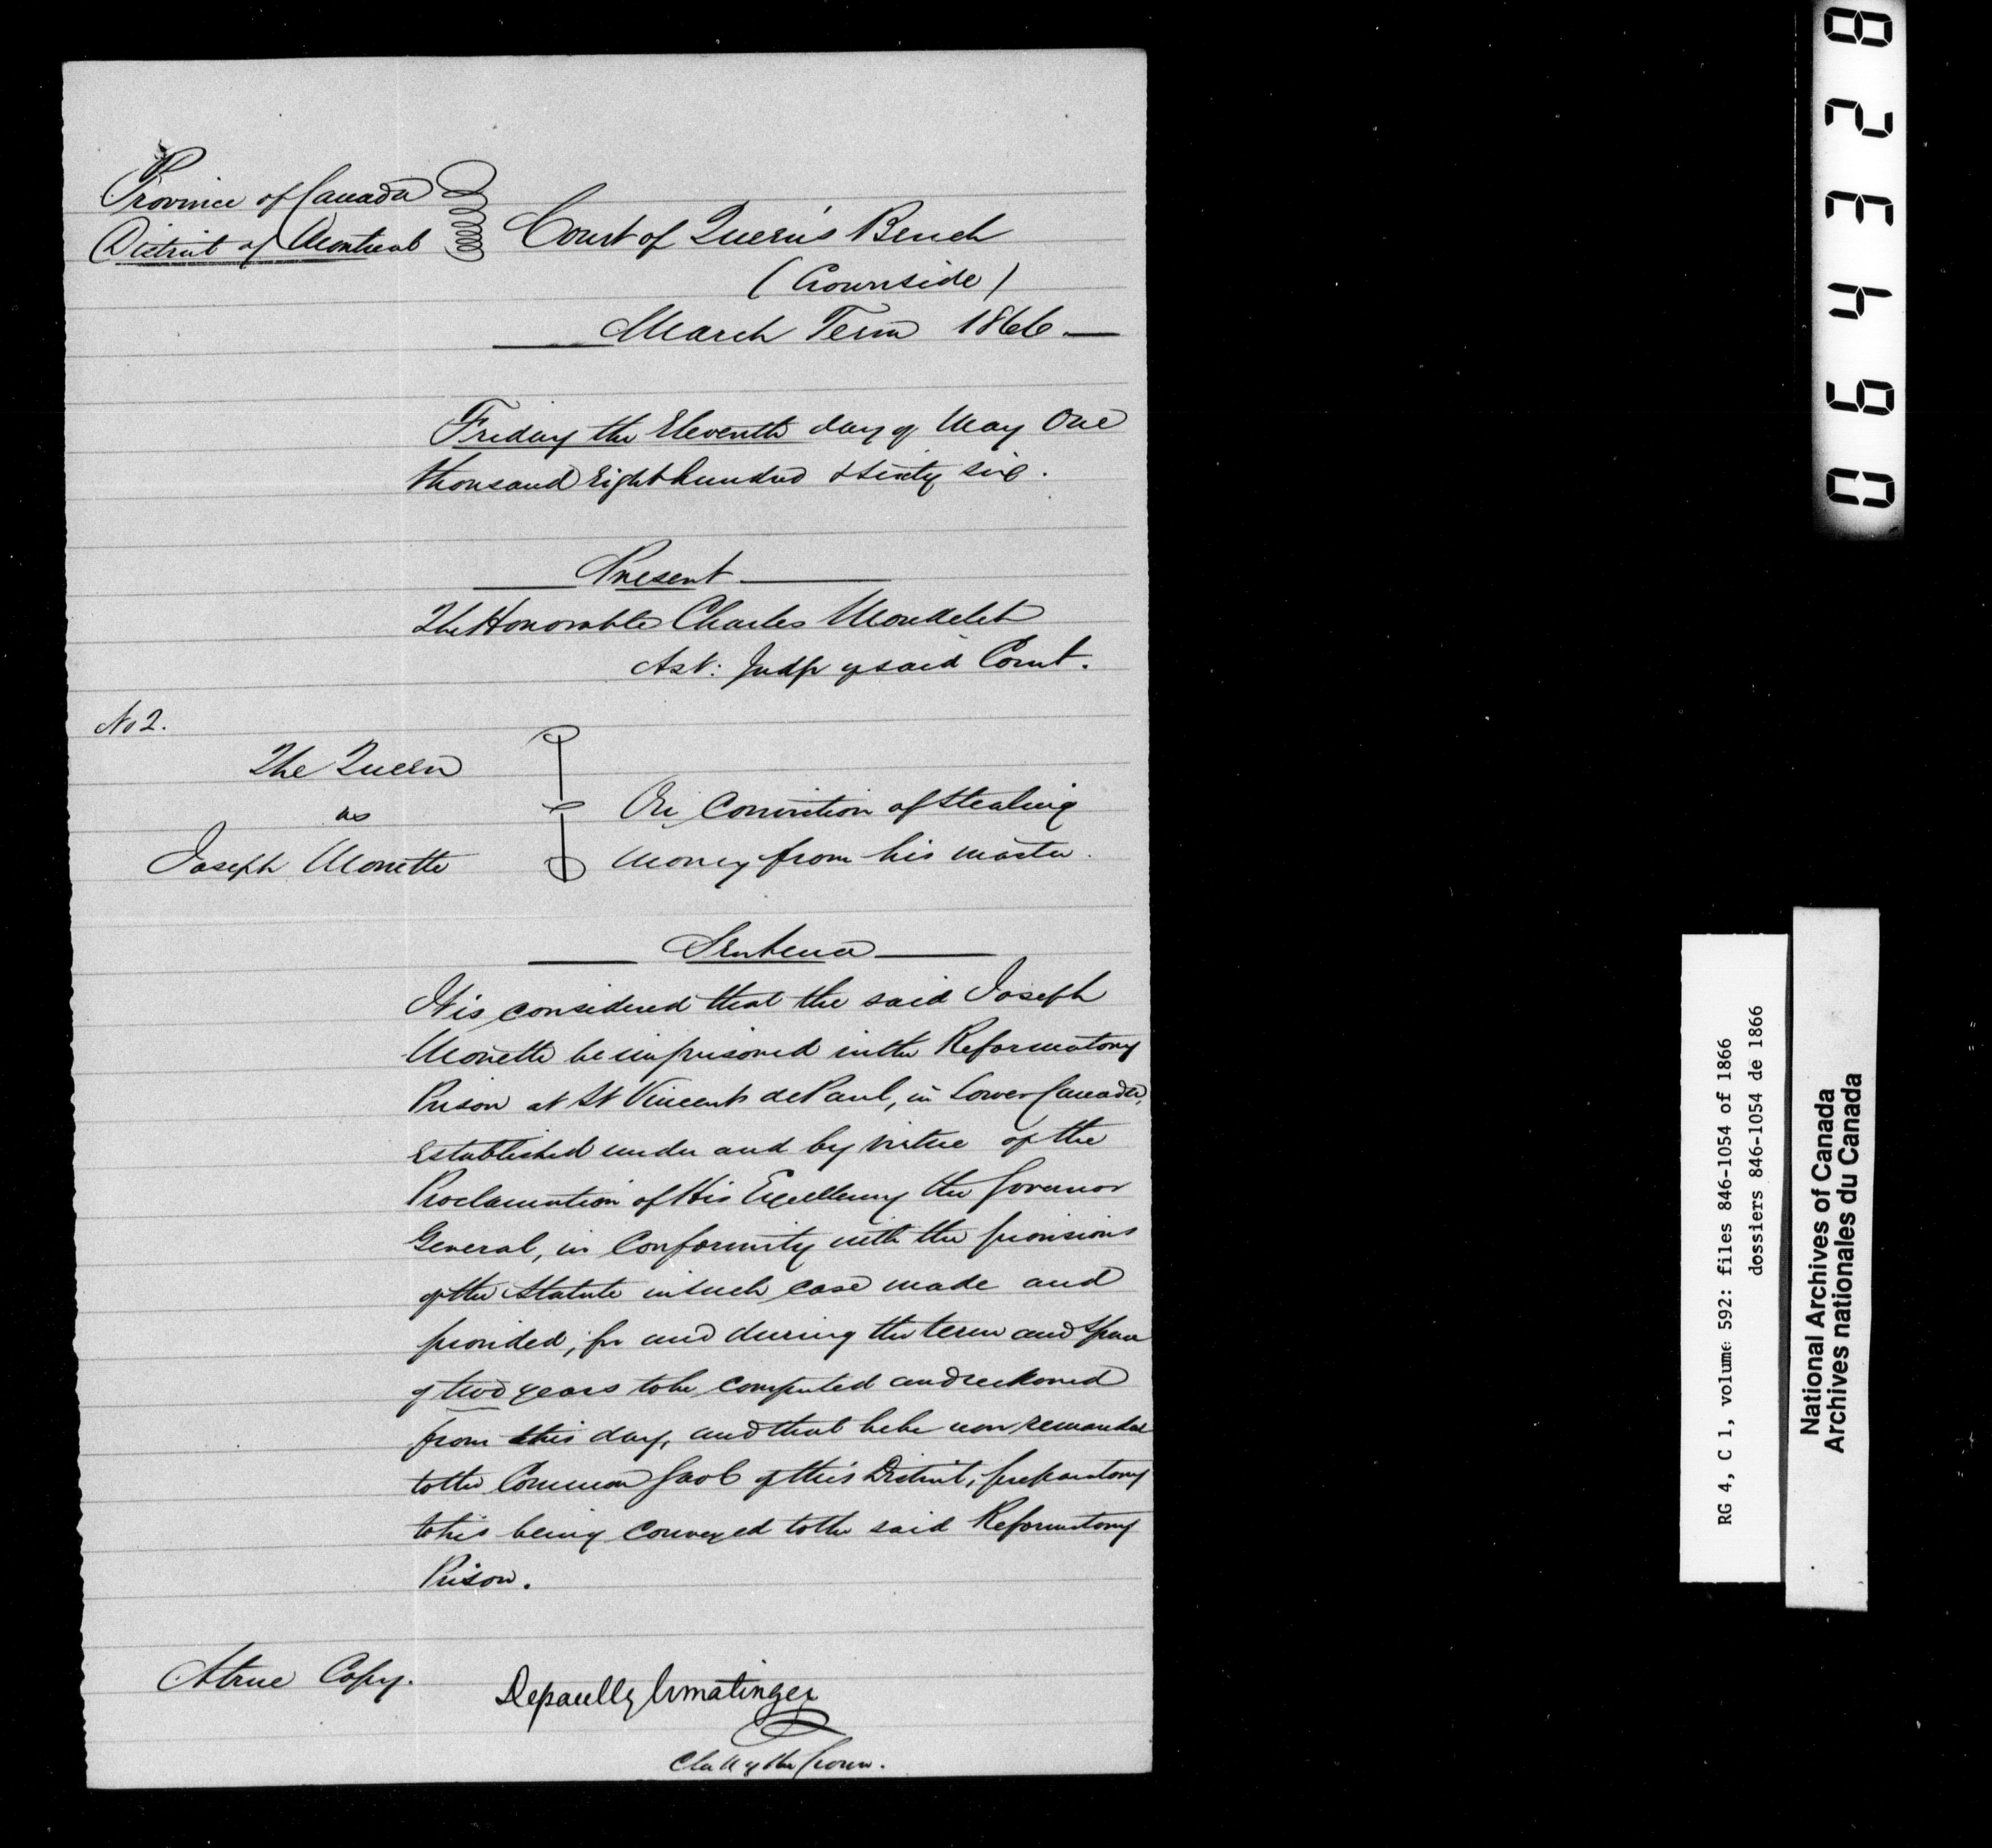 Province of Canada
District of Montreal
Court of Queen's Bench
(Crownside)
March Term 1866
Friday the Eleventh day of May One
thousand Eight hundred & sixty six.
Present
The Honorable Charles Mondelet
Ast: Judge of said Court.
No 2.
The Queen
vs
Joseph Monette
On Conviction of Stealing
money from his master.
Sentence
It is considered that the said Joseph
Monette be imprisoned in the Reformatory
Prison at St Vincent de Paul, in Lower Canada,
Established under and by virtue of the
Proclamation of His Excellency the Governor
General, in Conformity with the provisions
of the Statute in such case made and
provided, for and during the term and space
of two years to be computed and reckoned
from this day, and that he be now remanded
to the Common Gaol of this District, preparatory
to his being Conveyed to the said Reformatory
Prison.
A true Copy.
Ermatinger
Clerk of the Crown.
064328
RG 4, C 1, volume 592: files 846-1054 of 1866
dossiers 846-1054 de 1866
National Archives of Canada
Archives nationales du Canada